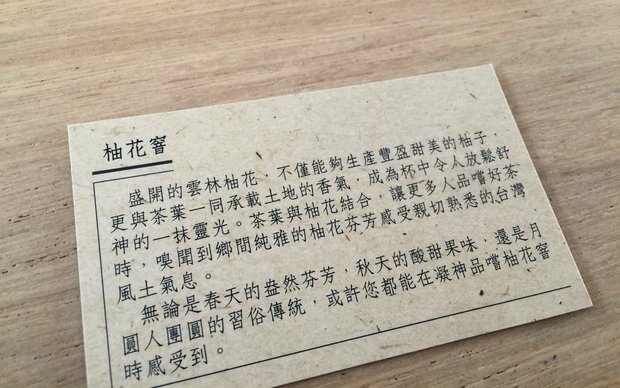 柚花窨
盛開的雲林柚花，不僅能夠生產豐盈甜美的柚子，
更與茶葉一同承載土地的香氣，成為杯中令人放鬆舒
神的一抹靈光。茶葉與柚花結合，讓更多人品嚐好茶
時，嗅聞到鄉間純雅的柚花芬芳感受親切熟悉的台灣
風土氣息。
無論是春天的盎然芬芳，秋天的酸甜果味，還是月
圓人團圓的習俗傳統，或許您都能在凝神品嚐柚花窨
時感受到。